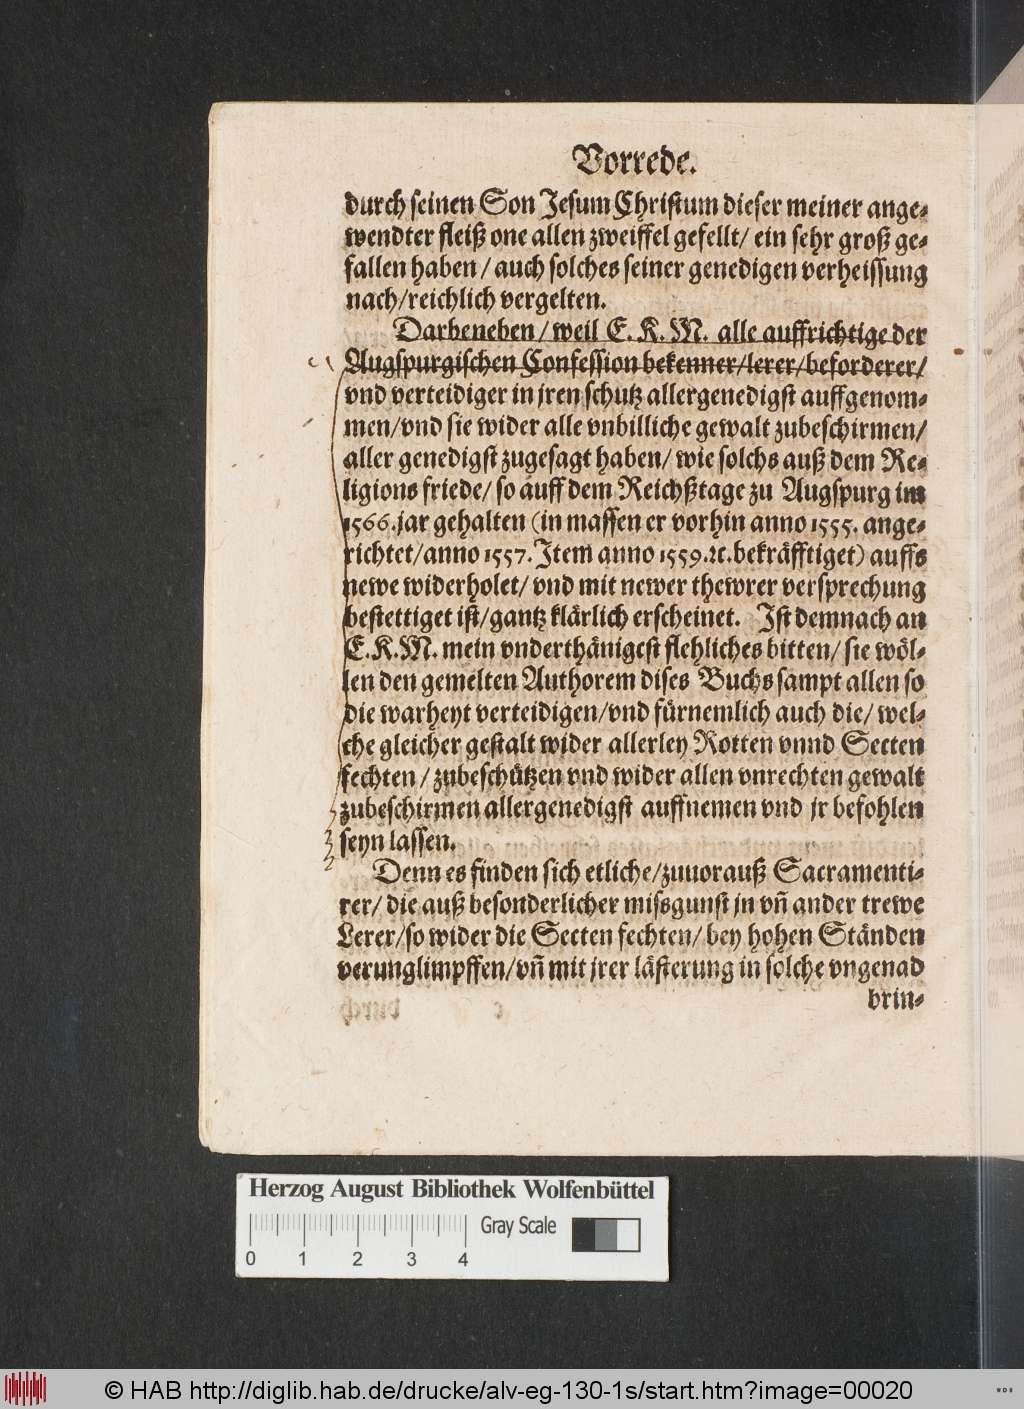 Vorrede.
durch seinen Son Jesum Christum dieser meiner ange-
wendter fleiß one allen zweiffel gefellt/ ein sehr groß ge-
fallen haben / auch solches seiner genedigen verheissung
nach/reichlich vergelten.
Darbeneben / weil E. K. M. alle auffrichtige der
Augspurgischen Confession bekenner/lerer/beforderer/
vnd verteidiger in jren schutz allergenedigst auffgenom-
men/vnd sie wider alle vnbilliche gewalt zubeschirmen/
aller genedigst zugesagt haben/ wie solchs auß dem Re-
ligions friede/ so auff dem Reichßtage zu Augspurg im
1566.jar gehalten (in massen er vorhin anno 1555. ange-
richtet/anno 1557. Item anno 1559.ꝛc.bekräfftiget) auffs
newe widerholet/ vnd mit newer thewrer versprechung
bestettiget ist/gantz klärlich erscheinet. Ist demnach an
E.K.M. mein vnderthänigest flehliches bitten/ sie wöl-
len den gemelten Authorem dises Buchs sampt allen so
die warheyt verteidigen/vnd fürnemlich auch die/ wel-
che gleicher gestalt wider allerley Rotten vnnd Secten
fechten / zubeschützen vnd wider allen vnrechten gewalt
zubeschirmen allergenedigst auffnemen vnd jr befohlen
seyn lassen.
Denn es finden sich etliche/zuuorauß Sacramenti-
rer/ die auß besonderlicher missgunst jn vñ ander trewe
Lerer/so wider die Secten fechten/ bey hohen Ständen
verunglimpffen/vñ mit jrer lästerung in solche vngenad
brin-
Herzog August Bibliothek Wolfenbüttel
Gray Scale
0 1 2 3 4
© HAB http://diglib.hab.de/drucke/alv-eg-130-1s/start.htm?image=00020